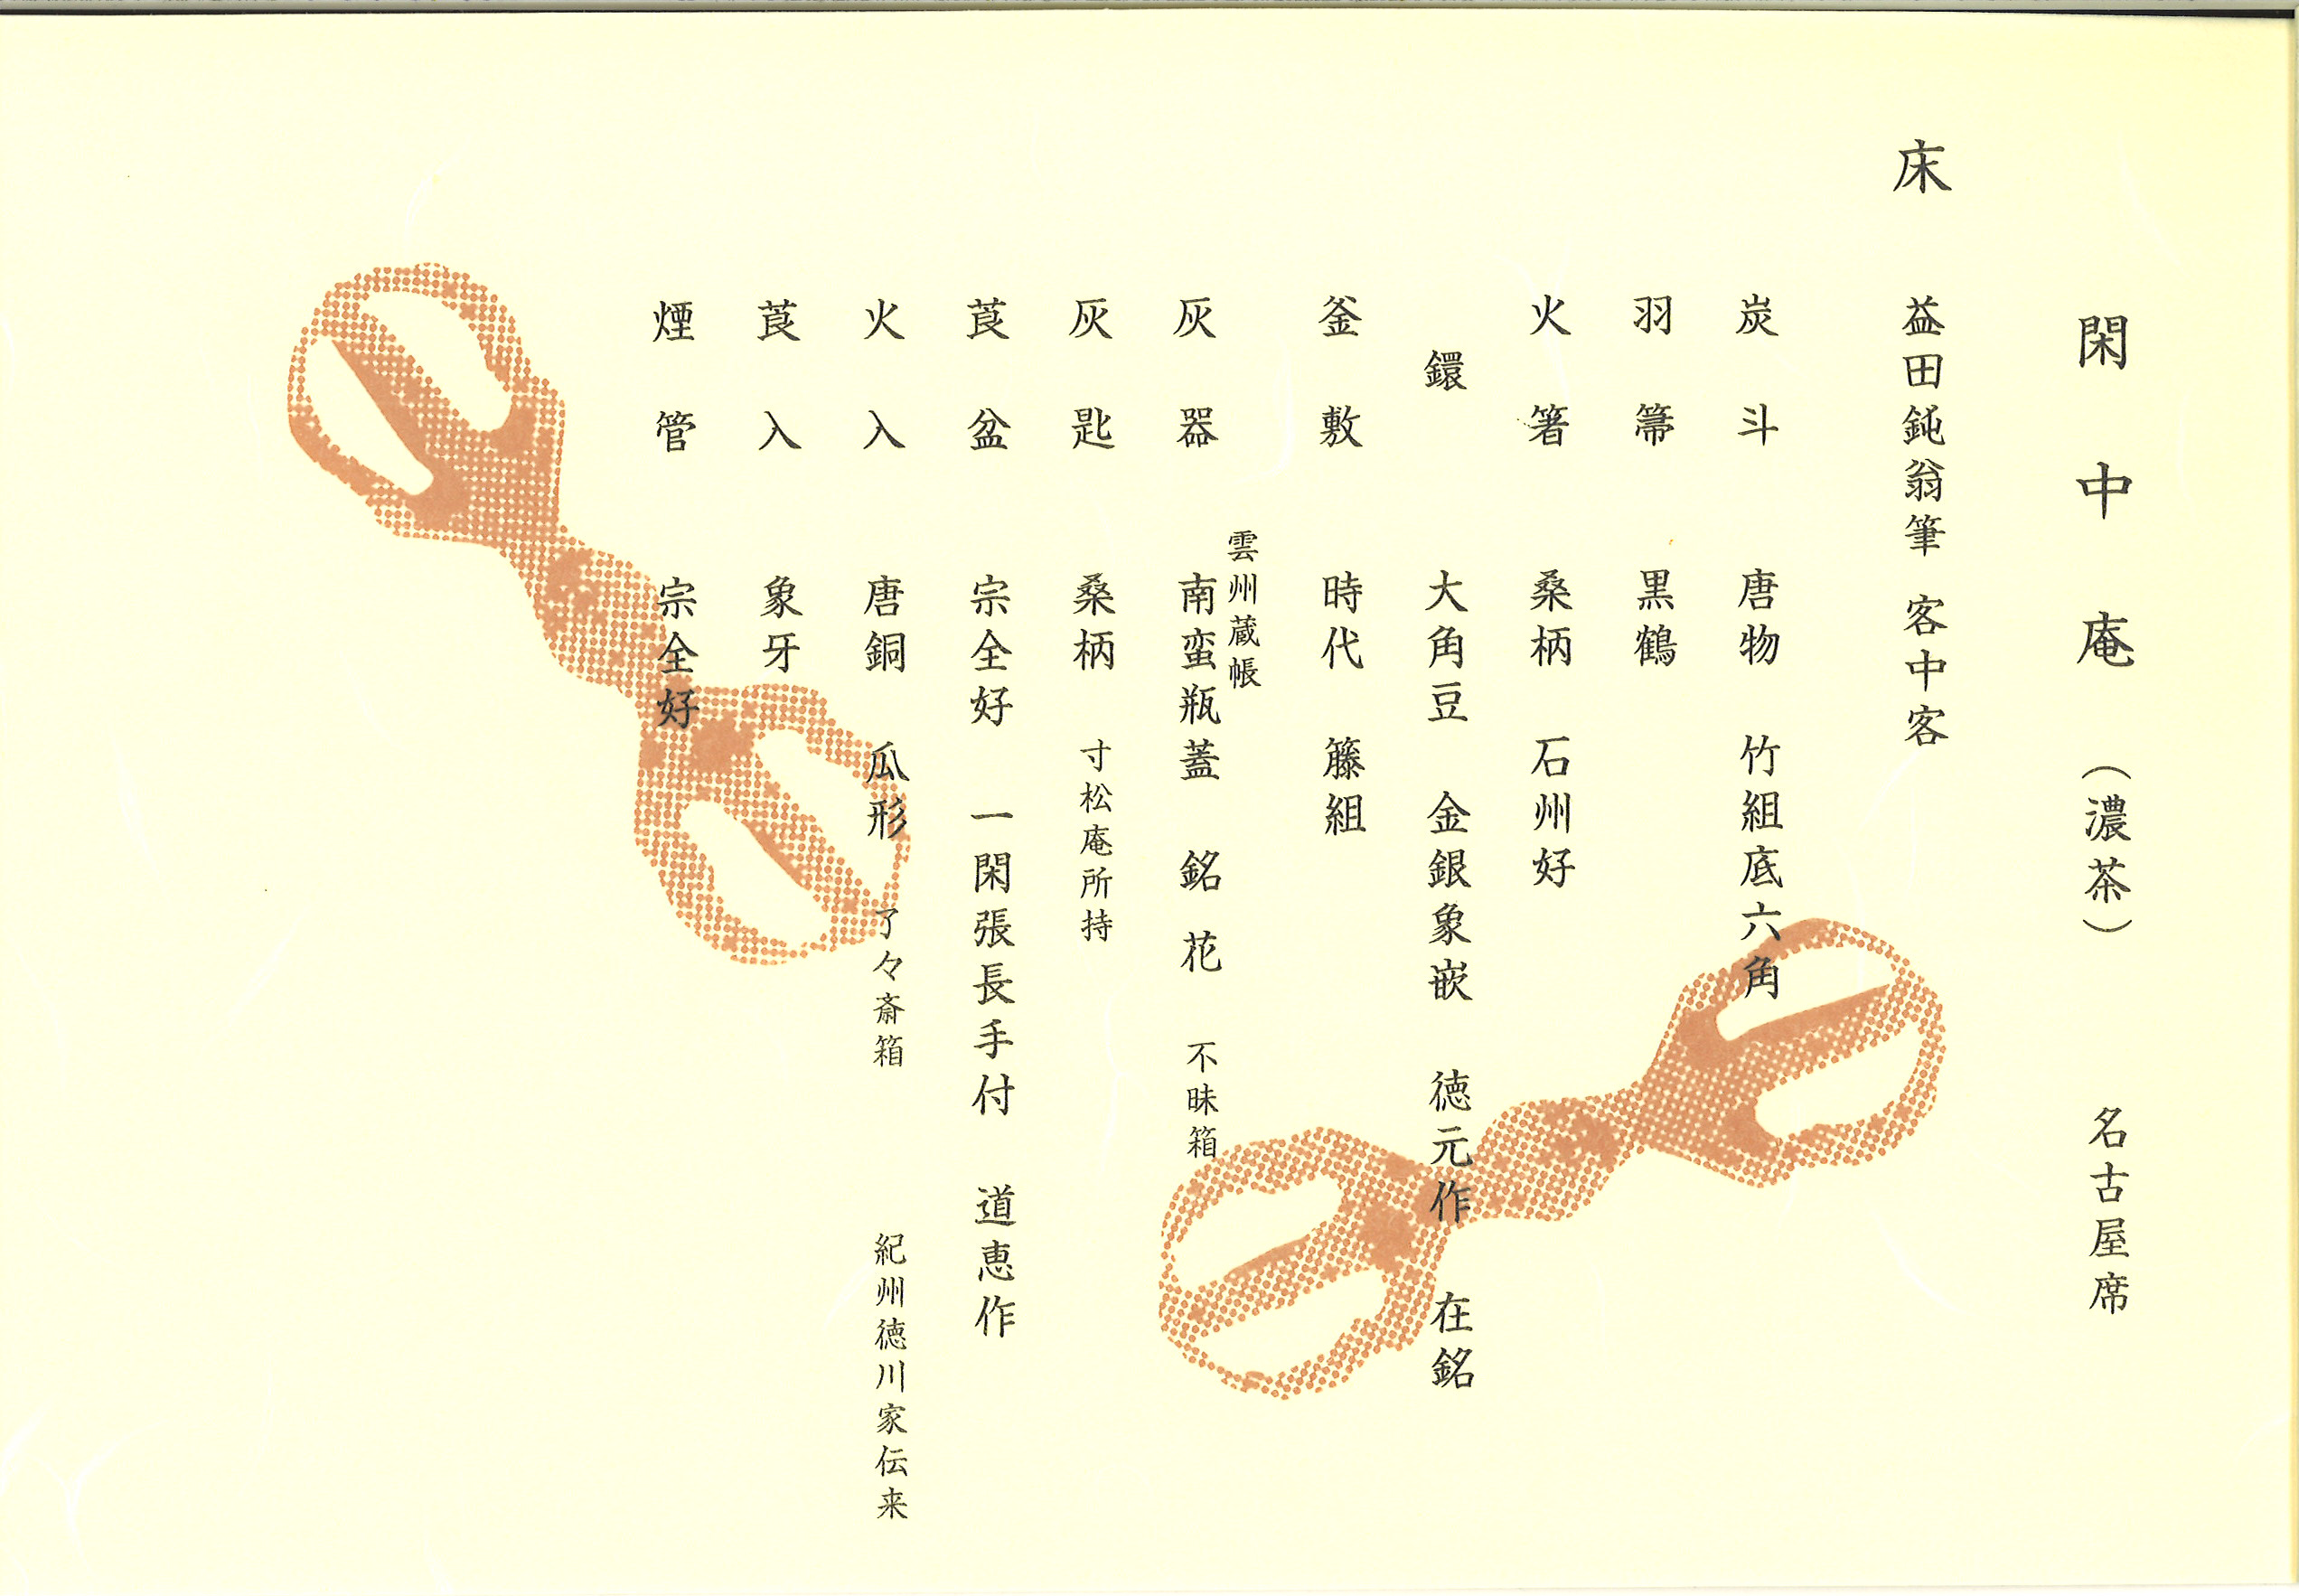 閑中庵（濃茶）　名古屋席
床　益田鈍翁筆　客中客
炭斗　唐物　竹組底六角
羽箒　黒鶴
火箸　桑柄　石州好
鐶　大角豆　金銀象嵌　徳元作　在銘
釜敷　時代　籐組
雲州蔵帳
灰器　南蛮瓶蓋　銘　花　不昧箱
灰匙　桑柄　寸松庵所持
莨盆　宗全好　一閑張長手付　道恵作
火入　唐銅　瓜形　了々斎箱　紀州徳川家伝来
莨入　象牙
煙管　宗全好